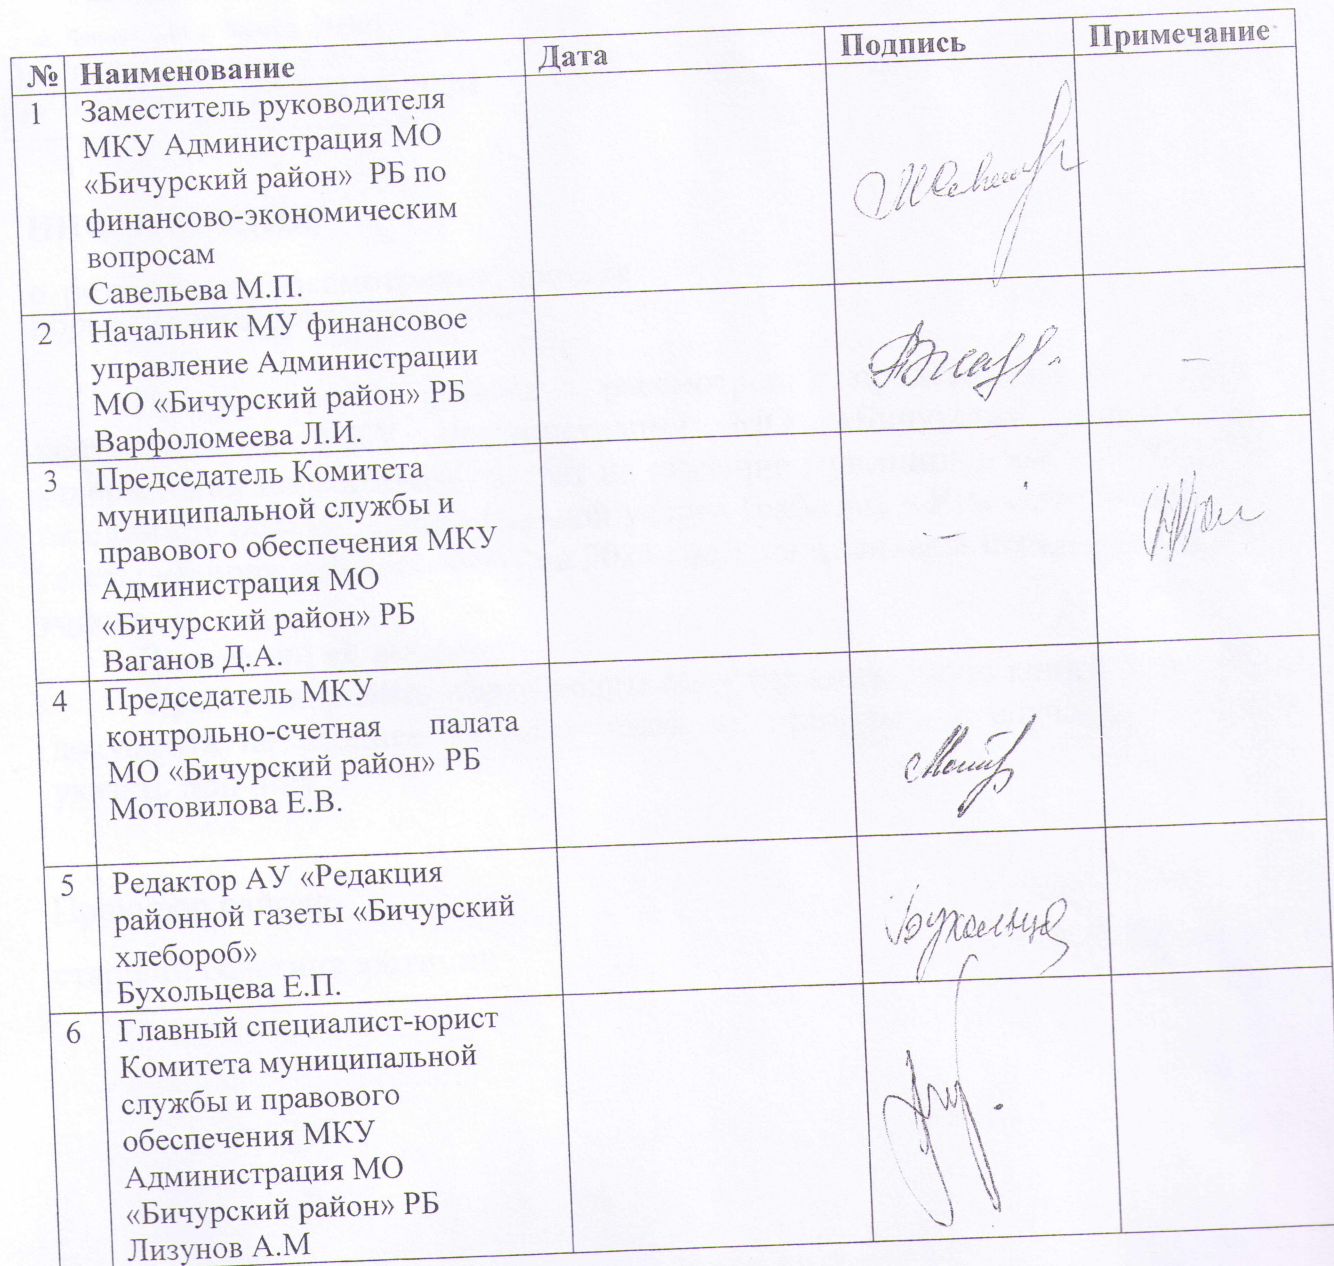 № Наименование Дата Подпись Примечание
1 Заместитель руководителя
МКУ Администрация МО
«Бичурский район» РБ по
финансово-экономическим
вопросам
Савельева М.П.
2 Начальник МУ финансовое
управление Администрации
МО «Бичурский район» РБ
Варфоломеева Л.И.
3 Председатель Комитета
муниципальной службы и
правового обеспечения МКУ
Администрация МО
«Бичурский район» РБ
Ваганов Д.А.
4 Председатель МКУ
контрольно-счетная палата
МО «Бичурский район» РБ
Мотовилова Е.В.
5 Редактор АУ «Редакция
районной газеты «Бичурский
хлебороб»
Бухольцева Е.П.
6 Главный специалист-юрист
Комитета муниципальной
службы и правового
обеспечения МКУ
Администрация МО
«Бичурский район» РБ
Лизунов А.М